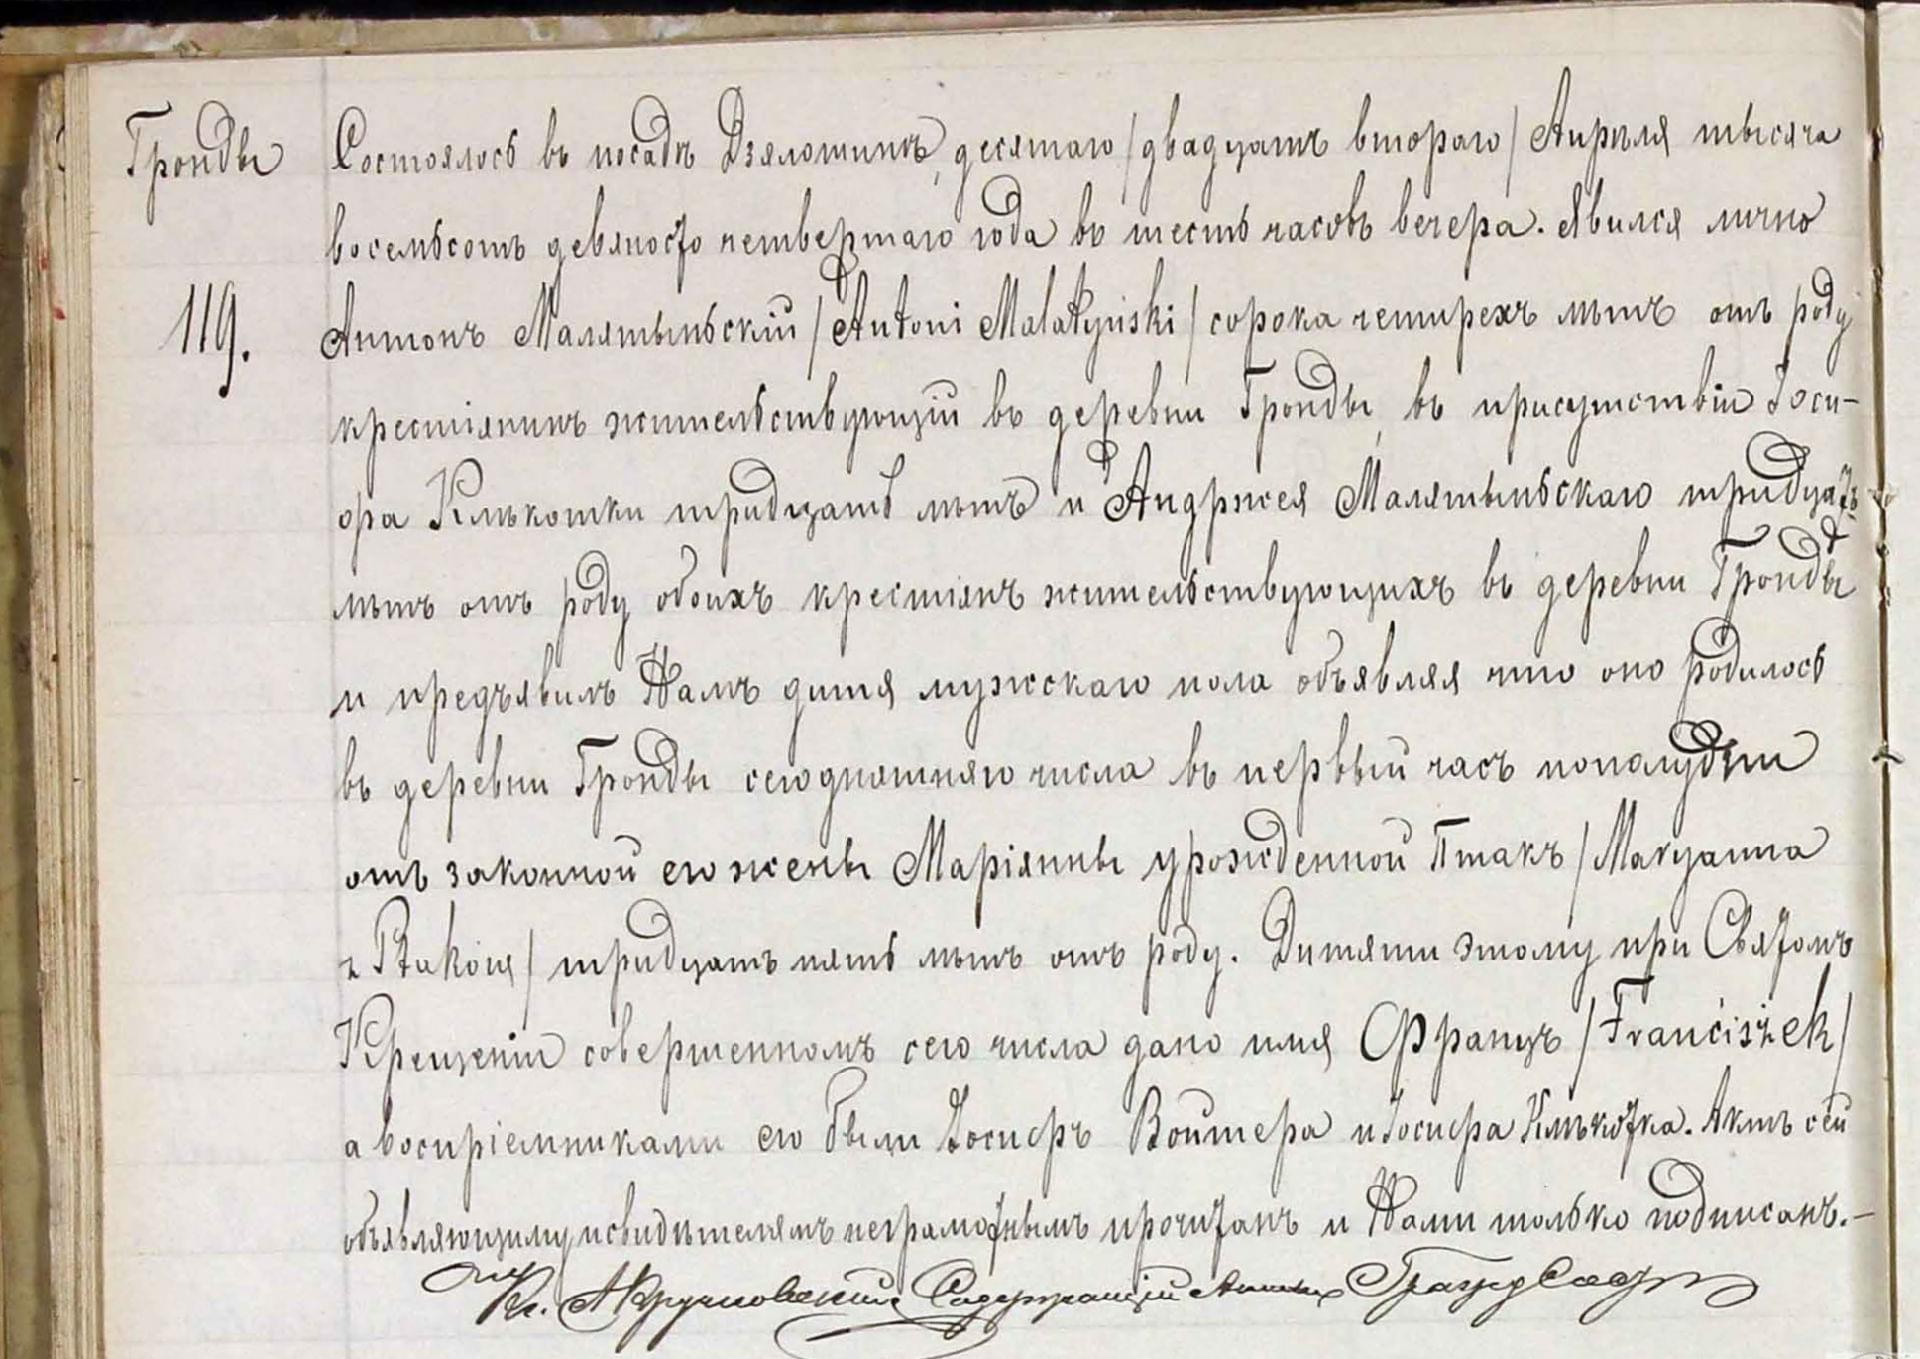 Гронды
119.
Состоялось въ посадѣ Дзялошинѣ, десятаго /двадцать втораго/ Апрѣля тысяча
восемьсотъ девяносто четвертаго года въ шесть часовъ вечера. Явился лично
Антонъ Малятыньскій /Antoni Malatyński/ сорока четырехъ лѣтъ отъ роду
крестіянинъ жительствующій въ деревни Гронды, въ присутствіи Іоси-
фа Кмѣкошки тридцать лѣтъ и Андржея Малятыньскаго тридцать
лѣтъ отъ роду обоихъ крестіянъ жительствующихъ въ деревни Гронды
и предъявилъ Намъ дитя мужскаго пола объявляя что оно родилось
въ деревни Гронды сегодняшняго числа въ первый часъ пополудни
отъ законной его жены Маріянны урожденной Птакъ /Maryanna
z Ptaków/ тридцать пять лѣтъ отъ роду. Дитяти этому при Святомъ
Крещеніи совершенномъ сего числа дано имя Францъ /Franciszek/
а воспріемниками его были Іосифъ Войтера и Іосифа Актъ сей
объявляющему и свидѣтелямъ неграмотнымъ прочитанъ и Нами только подписанъ.-
Кс. Содержащій